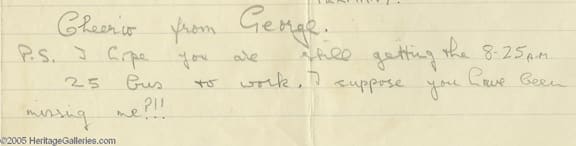 Cheerio from George.
P.S. I hope you are still getting the 8-25 A.M.
25 bus to work. I suppose you have been
missing me?!!
©2005 HeritageGalleries.com